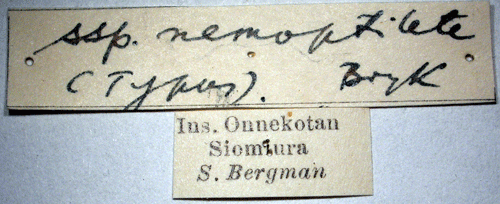 ssp. nemoptilete
(Typus). Bryk
Ins. Onnekotan
Siomiura
S. Bergman